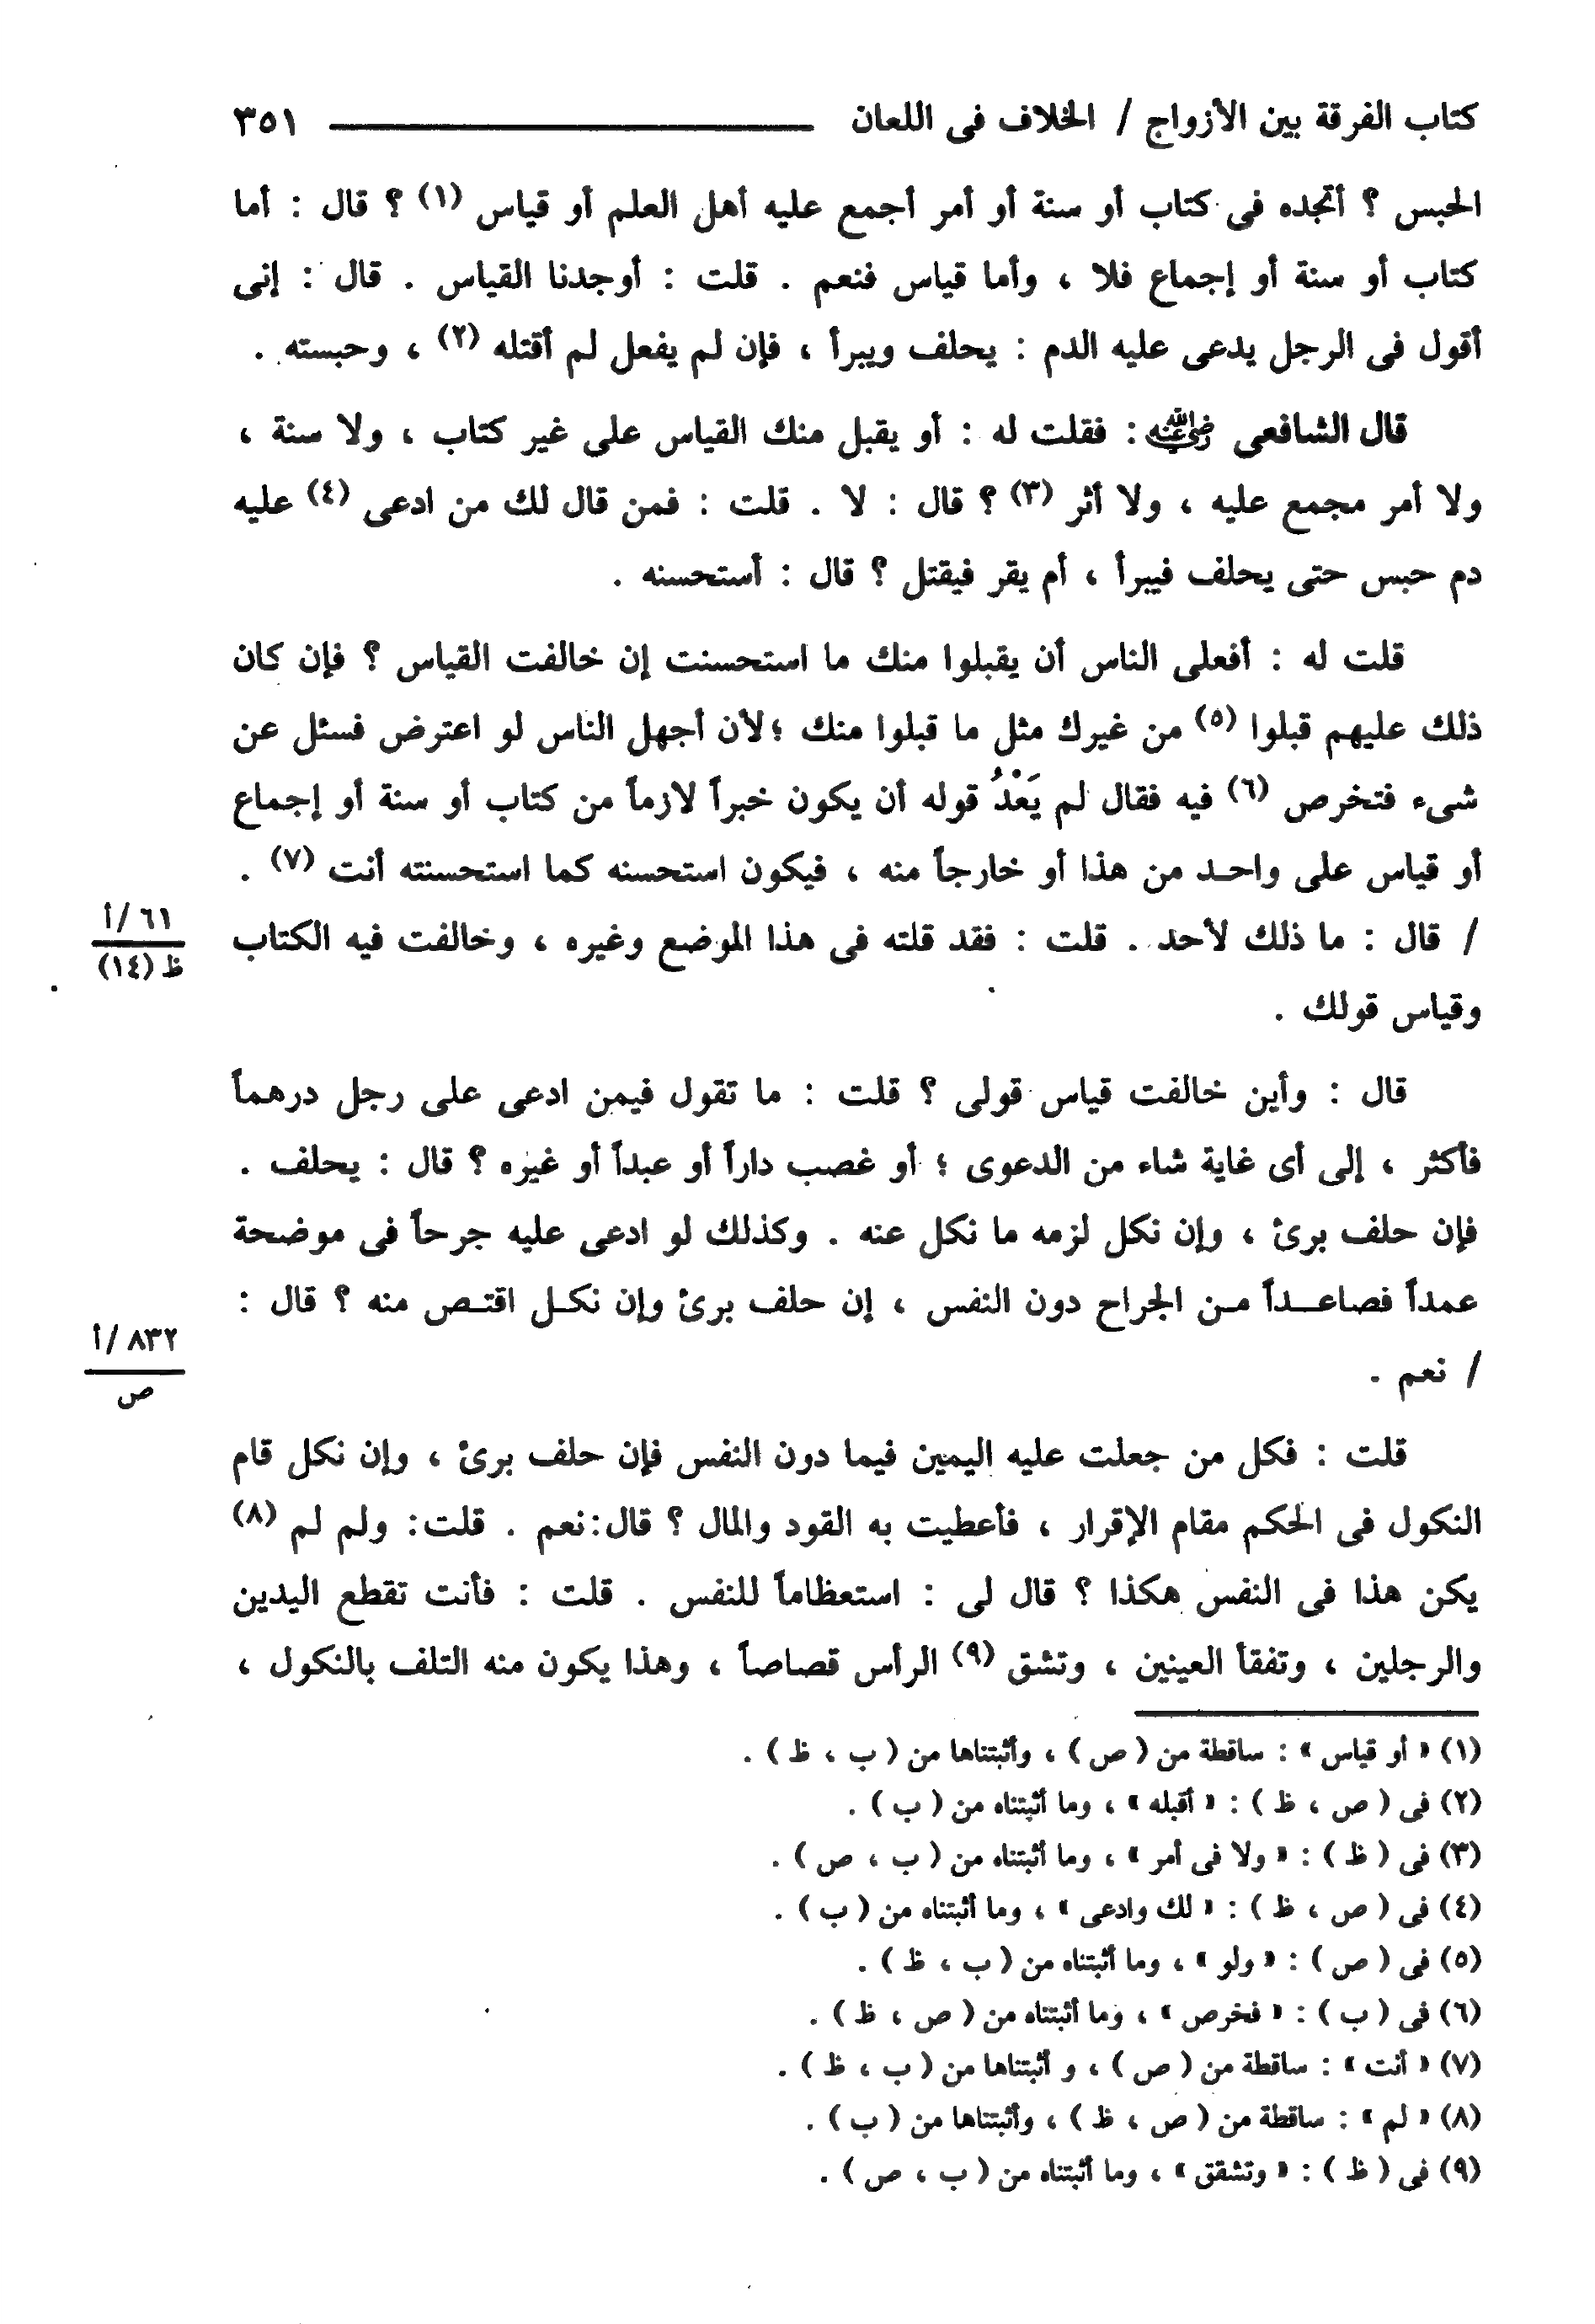 كتاب الفرقة بين الأزواج / الخلاف فى اللعان ــــــــــــــــ ٣٥١
الحبس ؟ أتجده فى كتاب أو سنة أو أمر أجمع عليه أهل العلم أو قياس (١) ؟ قال : أما
كتاب أو سنة أو إجماع فلا ، وأما قياس فنعم . قلت : أوجدنا القياس . قال : إنى
أقول فى الرجل يدعى عليه الدم : يحلف ويبرأ ، فإن لم يفعل لم أقتله (٢) ، وحبسته .
قال الشافعى رضي الله عنه : فقلت له : أو يقبل منك القياس على غير كتاب ، ولا سنة ،
ولا أمر مجمع عليه ، ولا أثر (٣) ؟ قال : لا . قلت : فمن قال لك من ادعى (٤) عليه
دم حبس حتى يحلف فيبرأ ، أم يقر فيقتل ؟ قال : أستحسنه .
قلت له : أفعلى الناس أن يقبلوا منك ما استحسنت إن خالفت القياس ؟ فإن كان
ذلك عليهم قبلوا (٥) من غيرك مثل ما قبلوا منك ؛ لأن أجهل الناس لو اعترض فسئل عن
شىء فتخرص (٦) فيه فقال لم يَعْدُ قوله أن يكون خبراً لازماً من كتاب أو سنة أو إجماع
أو قياس على واحد من هذا أو خارجاً منه ، فيكون استحسنه كما استحسنته أنت (٧) .
/ قال : ما ذلك لأحد . قلت : فقد قلته فى هذا الموضع وغيره ، وخالفت فيه الكتاب
٦١/أ
ظ (١٤)
وقياس قولك .
قال : وأين خالفت قياس قولى ؟ قلت : ما تقول فيمن ادعى على رجل درهماً
فأكثر ، إلى أى غاية شاء من الدعوى ؛ أو غصب داراً أو عبداً أو غيره ؟ قال : يحلف .
فإن حلف برئ ، وإن نكل لزمه ما نكل عنه . وكذلك لو ادعى عليه جرحاً فى موضحة
عمداً فصاعداً من الجراح دون النفس ، إن حلف برئ وإن نكل اقتص منه ؟ قال :
/ نعم .
٨٣٢/أ
ص
قلت : فكل من جعلت عليه اليمين فيما دون النفس فإن حلف برئ ، وإن نكل قام
النكول فى الحكم مقام الإقرار ، فأعطيت به القود والمال ؟ قال : نعم . قلت : ولم لم (٨)
يكن هذا فى النفس هكذا ؟ قال لى : استعظاماً للنفس . قلت : فأنت تقطع اليدين
والرجلين ، وتفقأ العينين ، وتشق (٩) الرأس قصاصاً ، وهذا يكون منه التلف بالنكول ،
(١) « أو قياس » : ساقطة من ( ص ) ، وأثبتناها من ( ب ، ظ ) .
(٢) فى ( ص ، ظ ) : « أقبله » ، وما أثبتناه من ( ب ) .
(٣) فى ( ظ ) : « ولا فى أمر » ، وما أثبتناه من ( ب ، ص ) .
(٤) فى ( ص ، ظ ) : « لك وادعى » ، وما أثبتناه من ( ب ) .
(٥) فى ( ص ) : « ولو » ، وما أثبتناه من ( ب ، ظ ) .
(٦) فى ( ب ) : « فخرص » ، وما أثبتناه من ( ص ، ظ ) .
(٧) « أنت » : ساقطة من ( ص ) ، و أثبتناها من ( ب ، ظ ) .
(٨) « لم » : ساقطة من ( ص ، ظ ) ، وأثبتناها من ( ب ) .
(٩) فى ( ظ ) : « وتشقق » ، وما أثبتناه من ( ب ، ص ) .